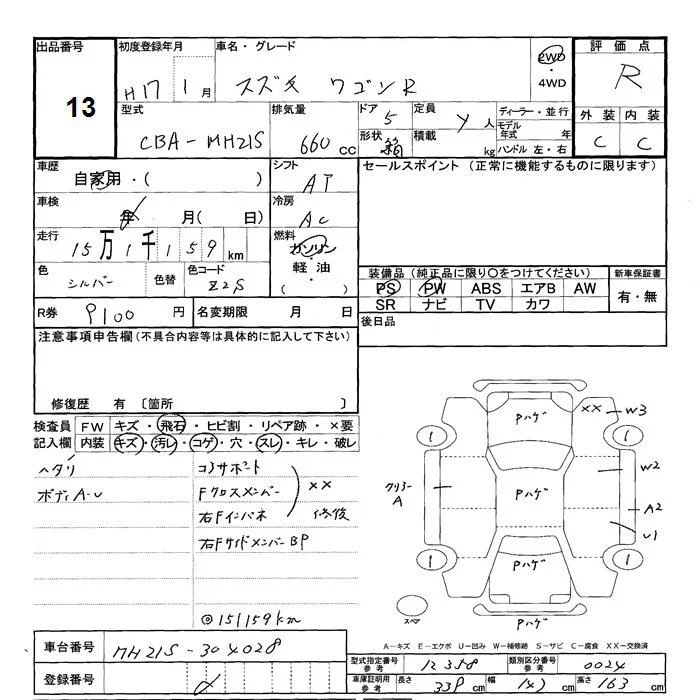 出品番号 初度登録年月 車名・グレード 評価点
13 H17 1月 スズキ ワゴンR 2WD・4WD R
型式 排気量 ドア 5 定員 人 ディーラー・並行 外装 内装
CBA-MH21S 660cc 形状 箱 積載 kg モデル年式 年 C C
ハンドル 左・右
車歴 シフト セールスポイント (正常に機能するものに限ります)
自家用・( ) AT
車検 冷房
年 月( 日) AC
走行 燃料
15万1千159km ガソリン・軽油 ( )
色 シルバー 色替 色コード Z2S
装備品 (純正品に限り〇をつけてください) 新車保証書
PS PW ABS エアB AW 有・無
SR ナビ TV カワ
R券 9100円 名変期限 月 日 後日品
注意事項申告欄(不具合内容等は具体的に記入して下さい)
修復歴 有 〔箇所 〕
検査員 FW キズ・飛石・ヒビ割・リペア跡・×要
記入欄 内装 キズ・汚レ・コゲ・穴・スレ・キレ・破レ
ヘタリ コアサポート
ボディA-U Fクロスメンバー XX
右Fインパネ 修復
右FサイドメンバーBP
◎151159km
Pハゲ XX W3
1 1
クリヤー A Pハゲ W2
A2
U1
1 1
Pハゲ
スマ
A-キズ E-エクボ U-凹み W-補修跡 S-サビ C-腐食 XX-交換済
車台番号 MH21S-304028
登録番号
型式指定番号 参考 12358 類別区分番号 参考 0024
車庫証明用 参考 長さ 339cm 幅 147cm 高さ 163cm